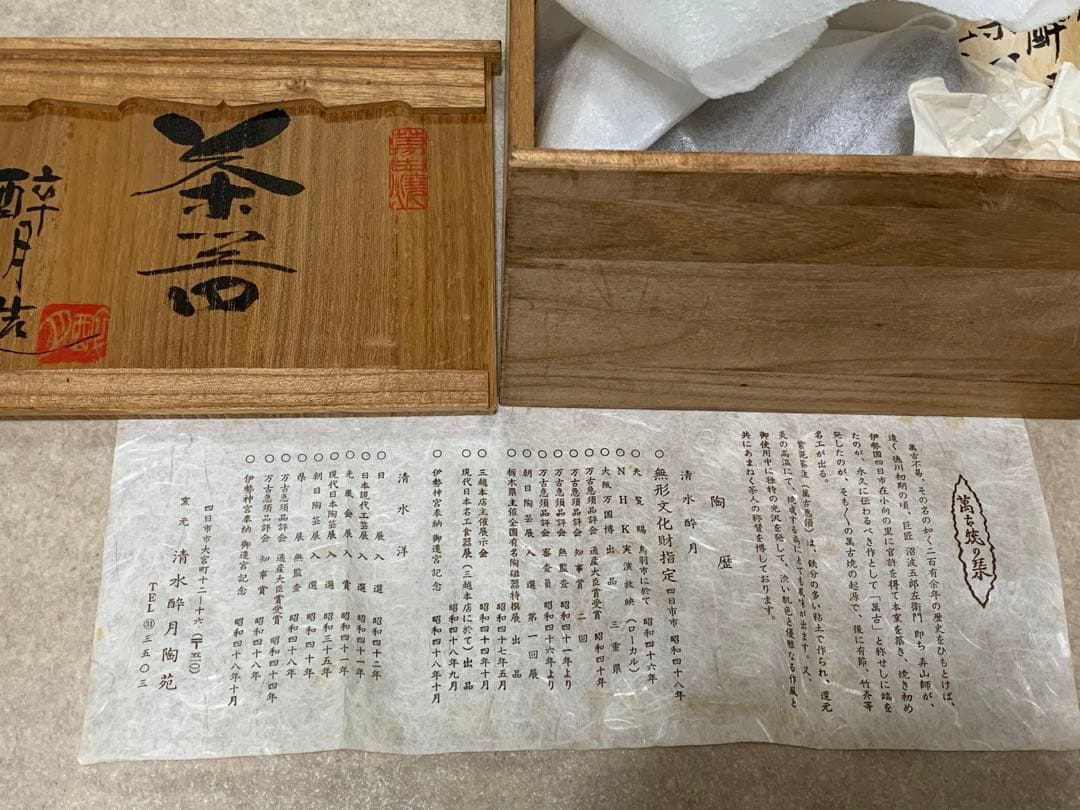 茶器
酔月造
萬古焼
酔月
酔
萬古焼の栞
萬古不易、その名の如く二百有余年の歴史をひもとけば、
遠く徳川初期の頃、巨匠 沼波五郎左衛門 即ち 弄山師が、
伊勢国四日市在小向の里に官許を得て本窯を築き、焼き初め
たのが、永久に伝わるべき作として「萬古」と称せしに端を
発したのが、そもそもの萬古焼の起源で、後に有節、竹斉等
名工が出る。
紫泥茶注（萬古急須）は、鉄分の多い粘土で作られ、還元
炎の高温にて、焼成する為にとても風味が出ます。又、
御使用中に独特の光沢を発して、渋い肌色と優雅なる作風と
共にあまねく茶人の称賛を博しております。
陶歴
清水酔月
○無形文化財指定 四日市市 昭和四十八年
○天覧賜 鳥羽市に於て 昭和四十六年
○NHK実演放映（ローカル）
○大阪万国博出品 三重県
○万古急須品評会 通産大臣賞受賞 昭和四十年
○万古急須品評会 知事賞 二回
○万古急須品評会 無監査 昭和四十一年より
○万古急須品評会 審査員 昭和四十六年より
○朝日陶芸展入選 第一回展
○栃木県主催全国有名陶磁器特撰展 出品 昭和四十七年五月
○三越本店主催展示会 昭和四十四年十月
○現代日本名工食器展（三越本店に於て）出品 昭和四十八年九月
○伊勢神宮奉納 御遷宮記念 昭和四十八年十月
清水洋
○日展入選 昭和四十二年
○日本現代工芸展入選 昭和四十一年
○光風会展入賞 昭和四十一年
○現代日本陶芸展入選 昭和三十五年
○朝日陶芸展入選 昭和四十年
○県展無監査 昭和四十八年
○万古急須品評会 通産大臣賞受賞 昭和四十四年
○万古急須品評会 知事賞 昭和四十八年
○伊勢神宮奉納 御遷宮記念 昭和四十八年十月
四日市市大宮町十二ー十六（〒五一〇）
窯元 清水酔月陶苑
TEL 三五〇三